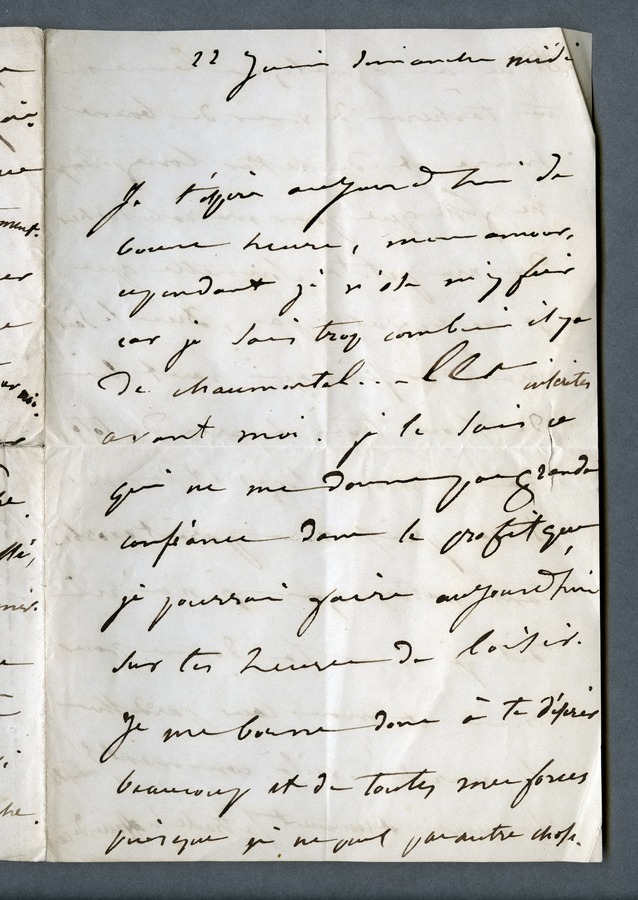 22 Juin dimanche midi
Je t'espère aujourd'hui de
bonne heure, mon amour,
cependant je n'ose m'y fier
car je sais trop combien il y a
de inscrites
avant moi. je le sais ce
qui ne me donne pas grande
confiance dans le profit que
je pourrai faire aujourd'hui
sur tes heures de loisir.
Je me borne donc à te désirer
beaucoup et de toutes mes forces
puisque je ne peux pas autre chose.